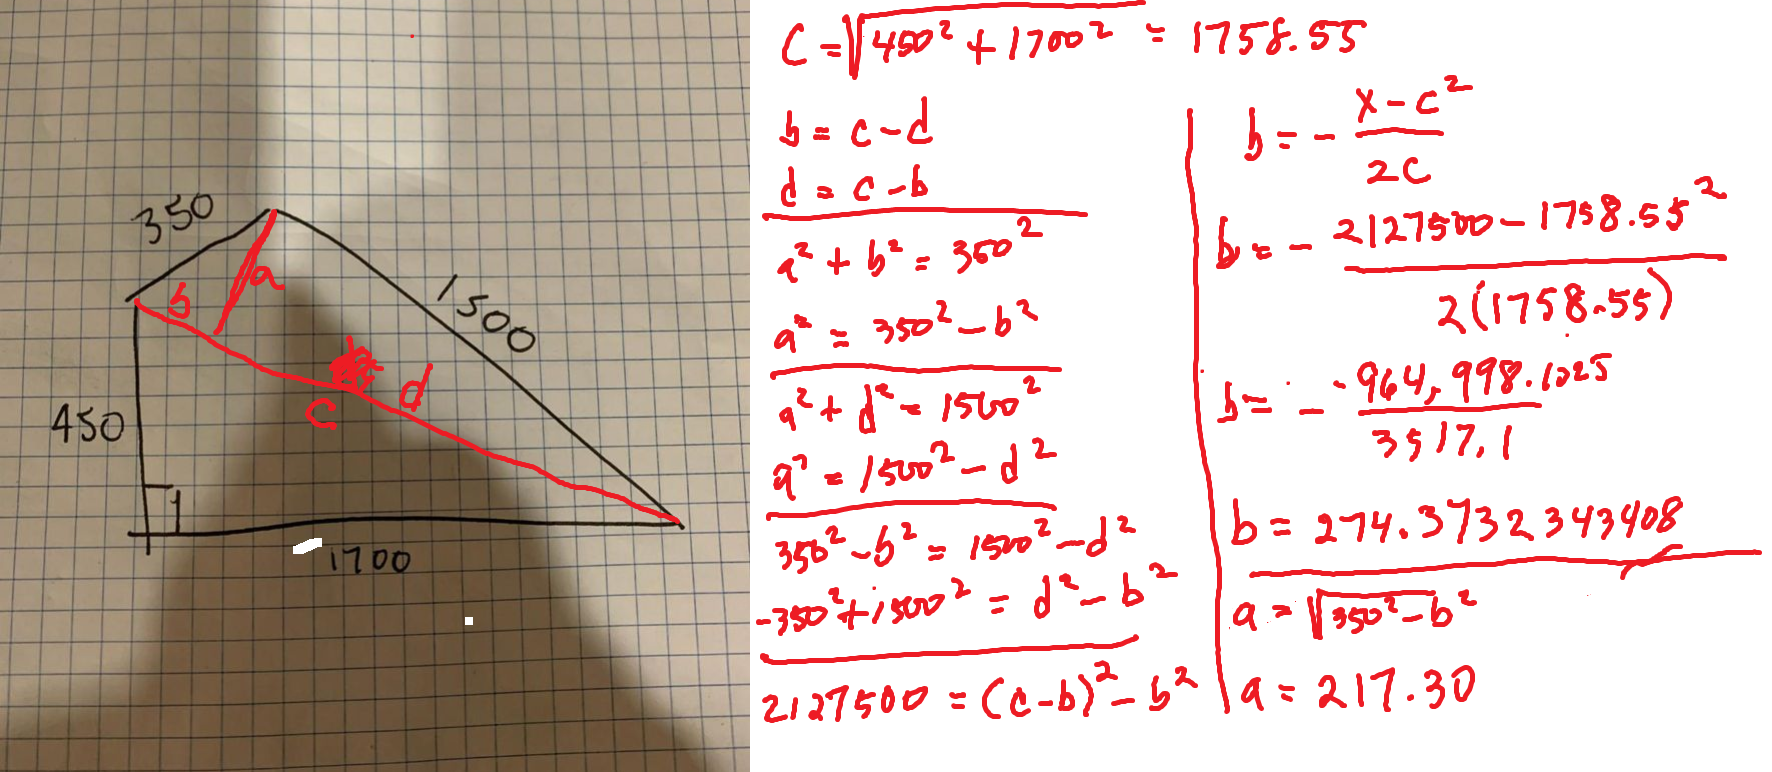 350
a
b
1500
d
c
450
1700
C = √450² + 1700² = 1758.55
b = c - d
d = c - b
a² + b² = 350²
a² = 350² - b²
a² + d² = 1500²
a² = 1500² - d²
350² - b² = 1500² - d²
-350² + 1500² = d² - b²
2127500 = (c - b)² - b²
b = - x - c² / 2C
b = - 2127500 - 1758.55² / 2(1758.55)
b = - -964,998.1025 / 3517.1
b = 274.3732343408
a = √350² - b²
a = 217.30